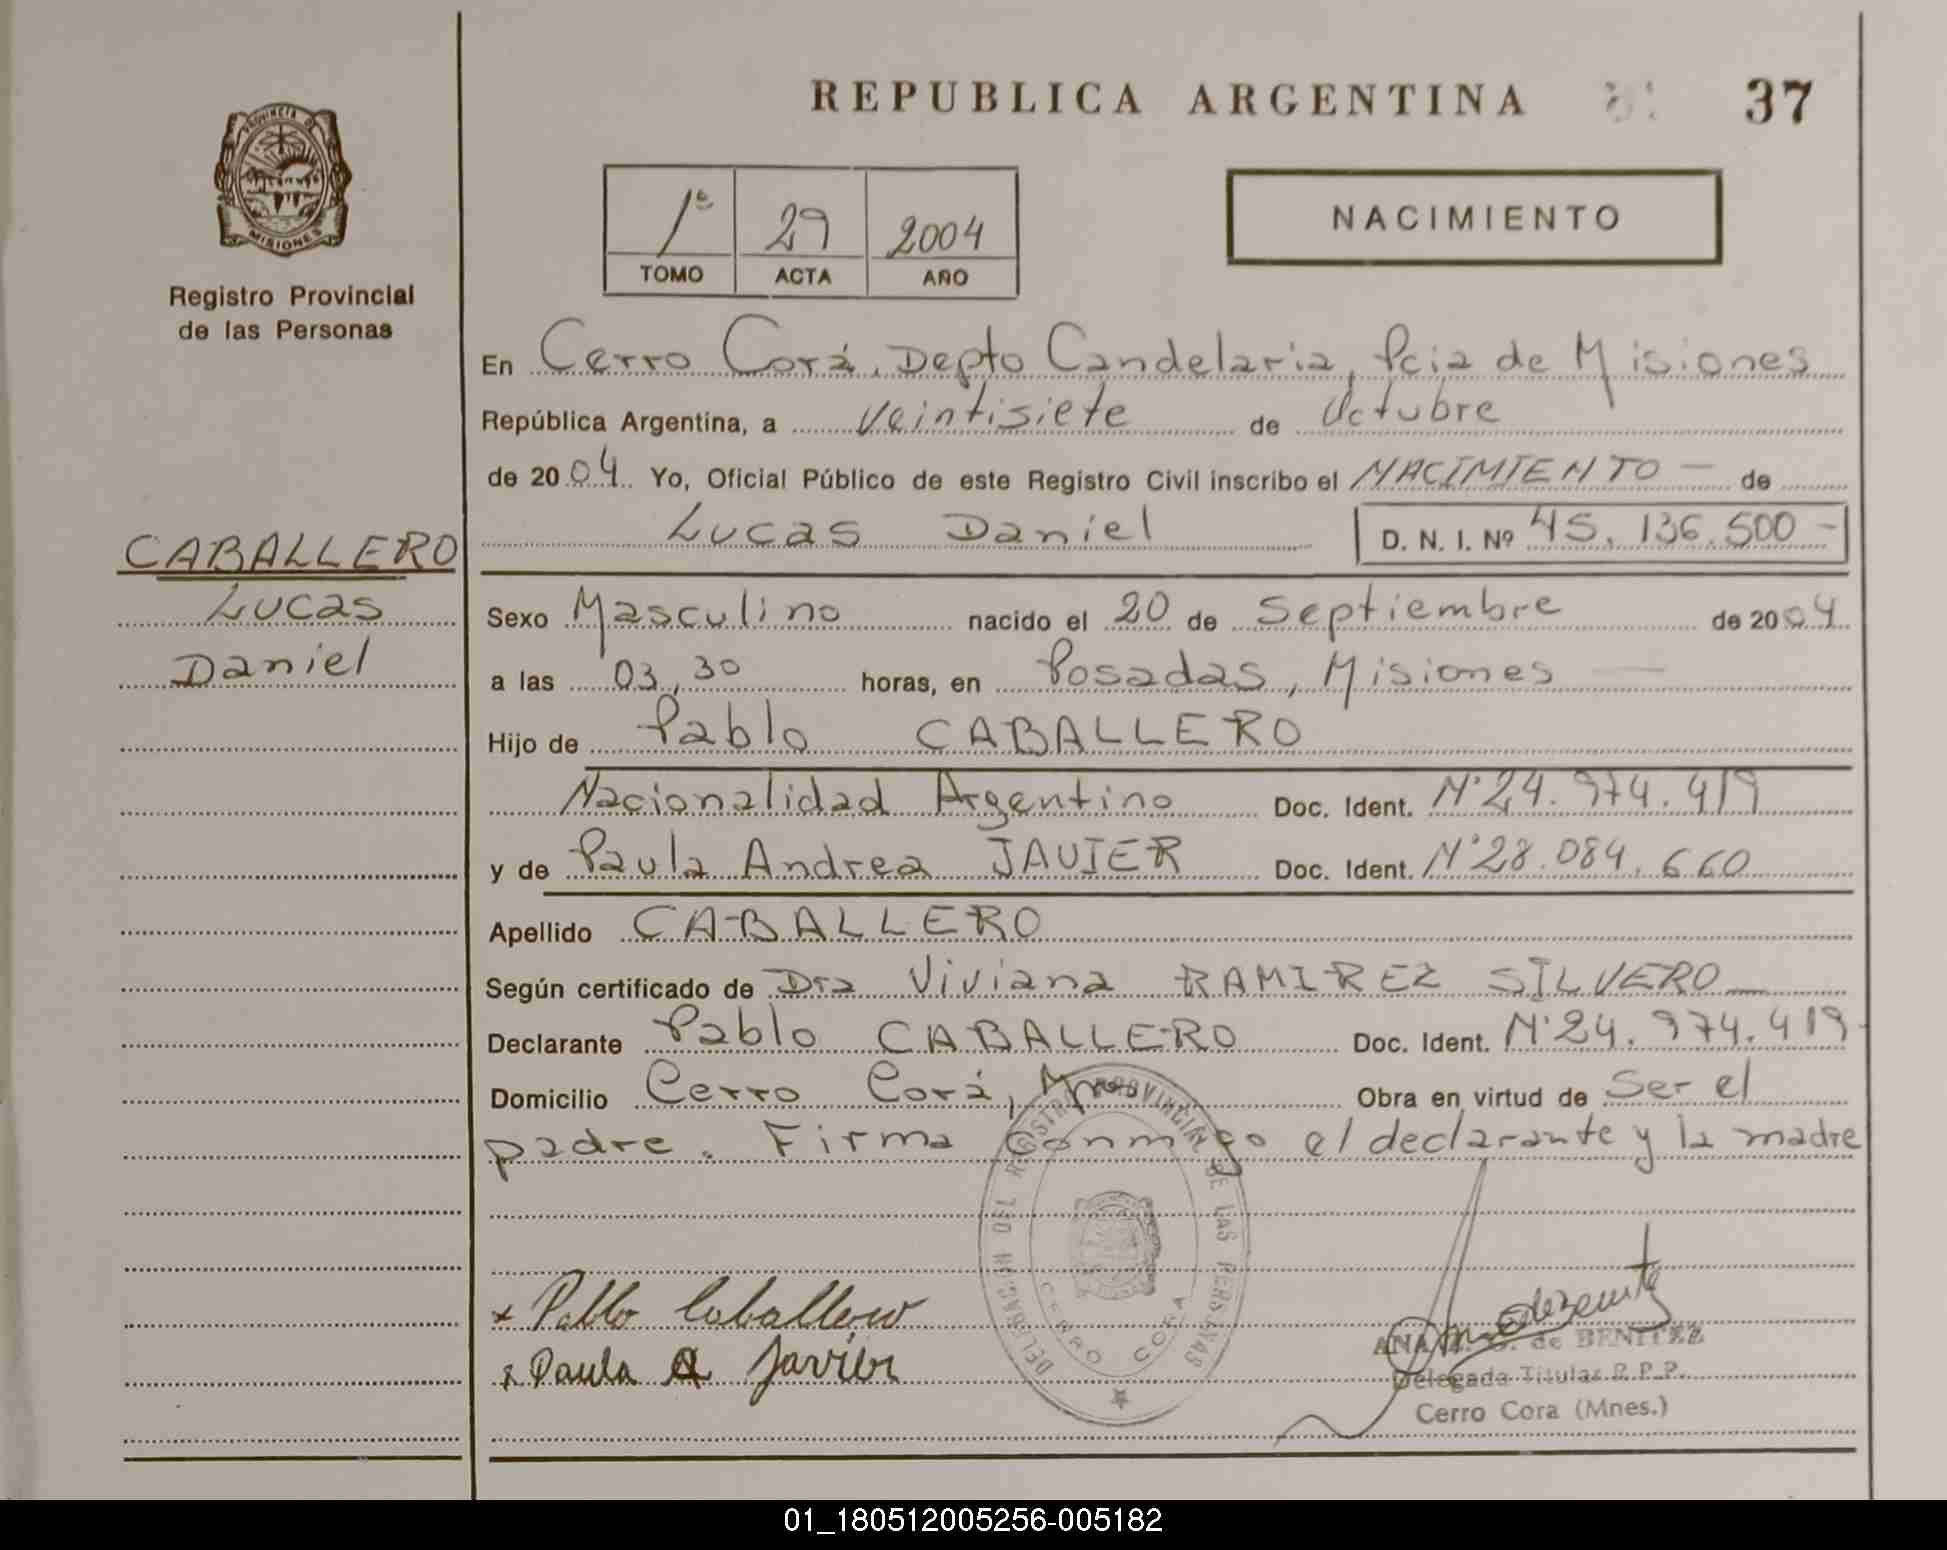 REPUBLICA ARGENTINA 37
PROVINCIA DE
MISIONES
Registro Provincial
de las Personas
1º 29 2004
TOMO ACTA AÑO
NACIMIENTO
En Cerro Corá, Depto Candelaria, Pcia de Misiones
República Argentina, a Veintisiete de Octubre
de 2004 Yo, Oficial Público de este Registro Civil inscribo el NACIMIENTO — de
Lucas Daniel D. N. I. Nº 45.136.500 -
CABALLERO
Lucas
Daniel
Sexo Masculino nacido el 20 de Septiembre de 2004
a las 03,30 horas, en Posadas, Misiones —
Hijo de Pablo CABALLERO
Nacionalidad Argentino Doc. Ident. Nº 24.974.419
y de Paula Andrea JAVIER Doc. Ident. Nº 28.084.660
Apellido CABALLERO
Según certificado de Dra Viviana RAMIREZ SILVERO
Declarante Pablo CABALLERO Doc. Ident. Nº 24.974.419-
Domicilio Cerro Corá, Mnes Obra en virtud de Ser el
padre. Firma conmigo el declarante y la madre
DELEGACION DEL REGISTRO PROVINCIAL DE LAS PERSONAS
CERRO CORA
x Pablo Caballero
x Paula A Javier
ANA de BENITEZ
Delegada Titular R.P.P.
Cerro Cora (Mnes.)
01_180512005256-005182